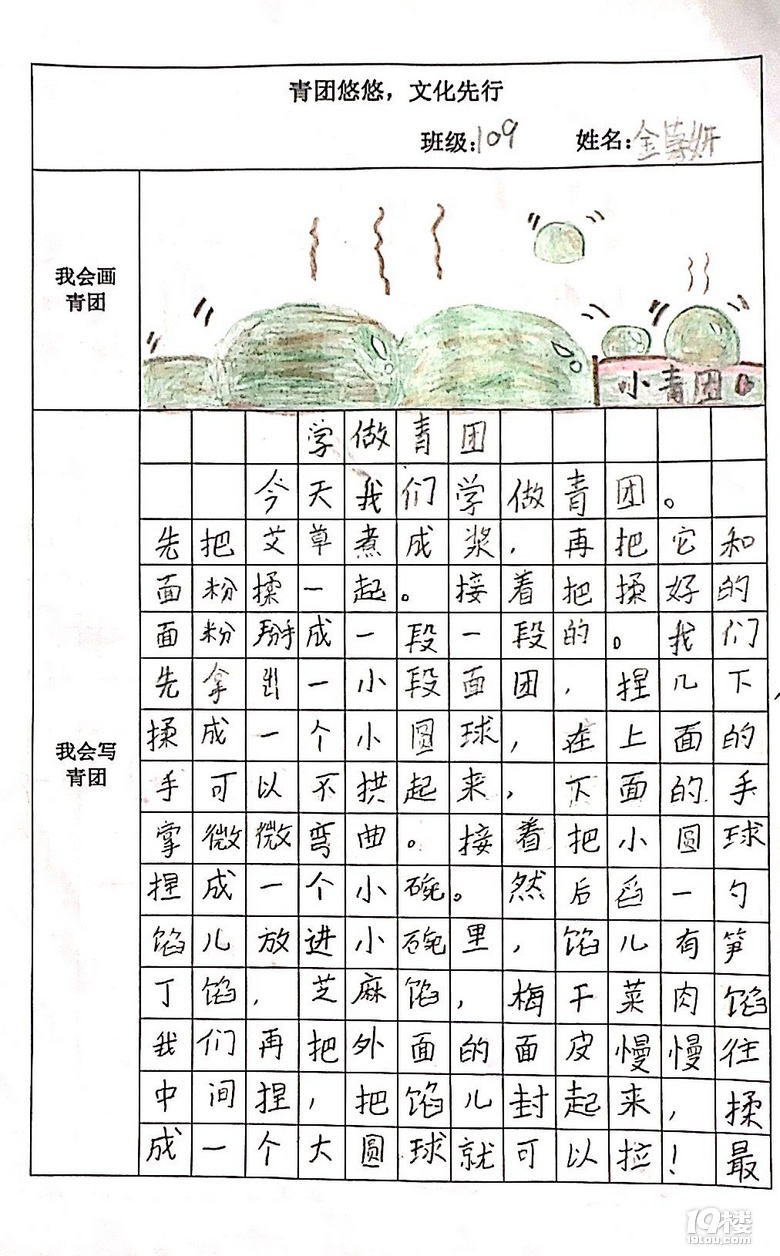 青团悠悠，文化先行
班级:109 姓名:金 妍
我会画
青团
小青团
我会写
青团
学做青团
今天我们学做青团。
先把艾草煮成浆，再把它和
面粉揉一起。接着把揉好的
面粉掰成一段一段的。我们
先拿出一小段面团，捏几下
揉成一个小圆球，在上面的
手可以不拱起来，下面的手
掌微微弯曲。接着把小圆球
捏成一个小碗。然后舀一勺
馅儿放进小碗里，馅儿有笋
丁馅，芝麻馅，梅干菜肉馅
我们再把外面的面皮慢慢往
中间捏，把馅儿封起来，揉
成一个大圆球就可以拉！最
19楼
19lou.com